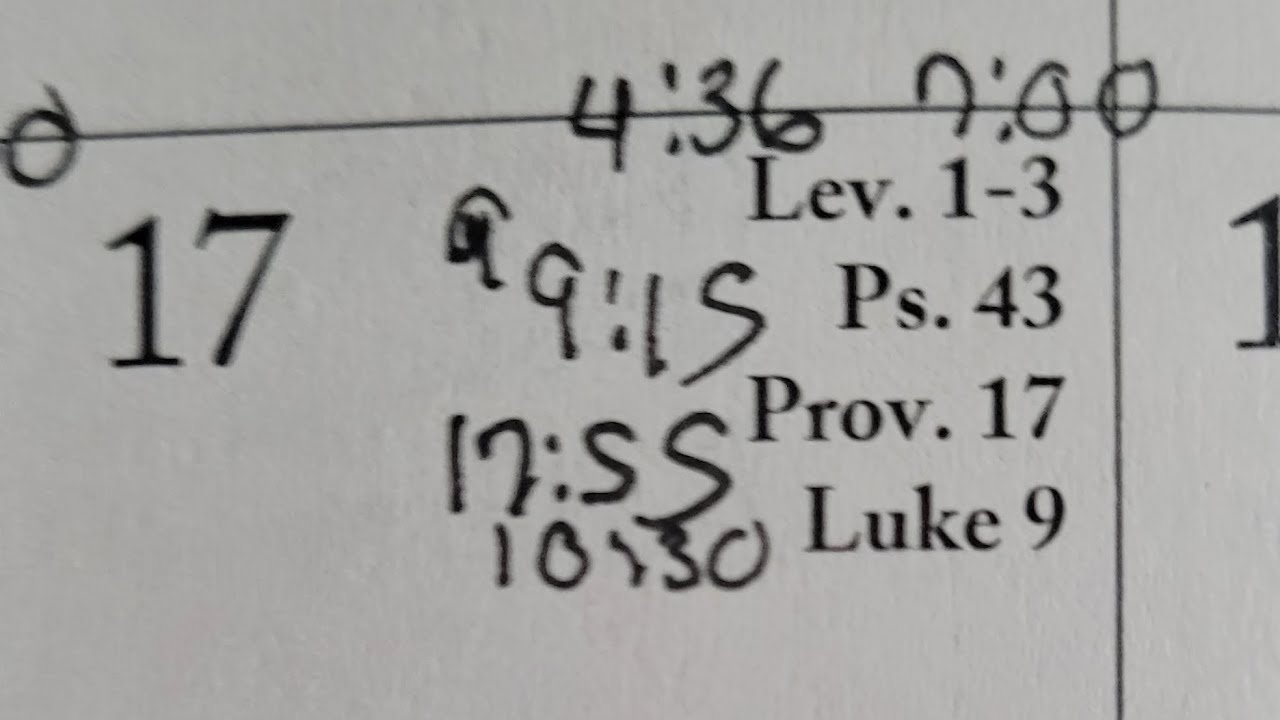 4:36 7:00
Lev. 1-3
17
9:15
Ps. 43
Prov. 17
17:55
Luke 9
10:30